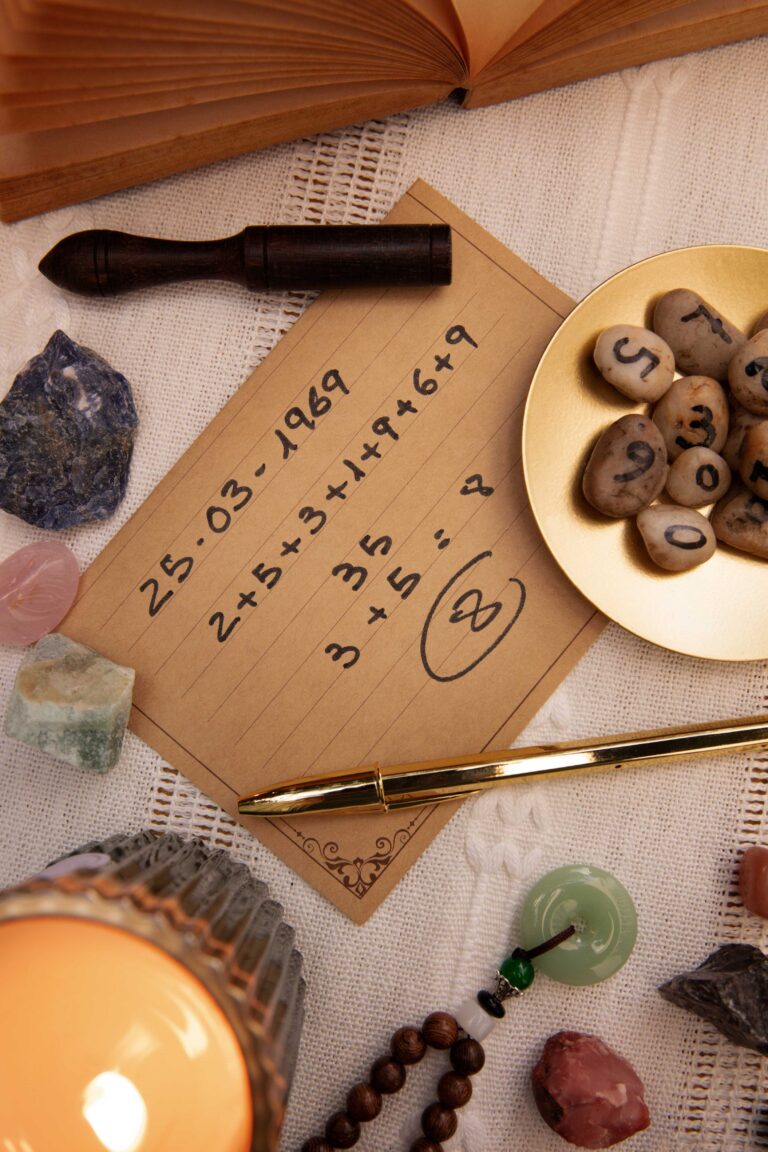 25.03-1969
2+5+3+1+9+6+9
35
3+5=8
8
5
7
3
9
0
0